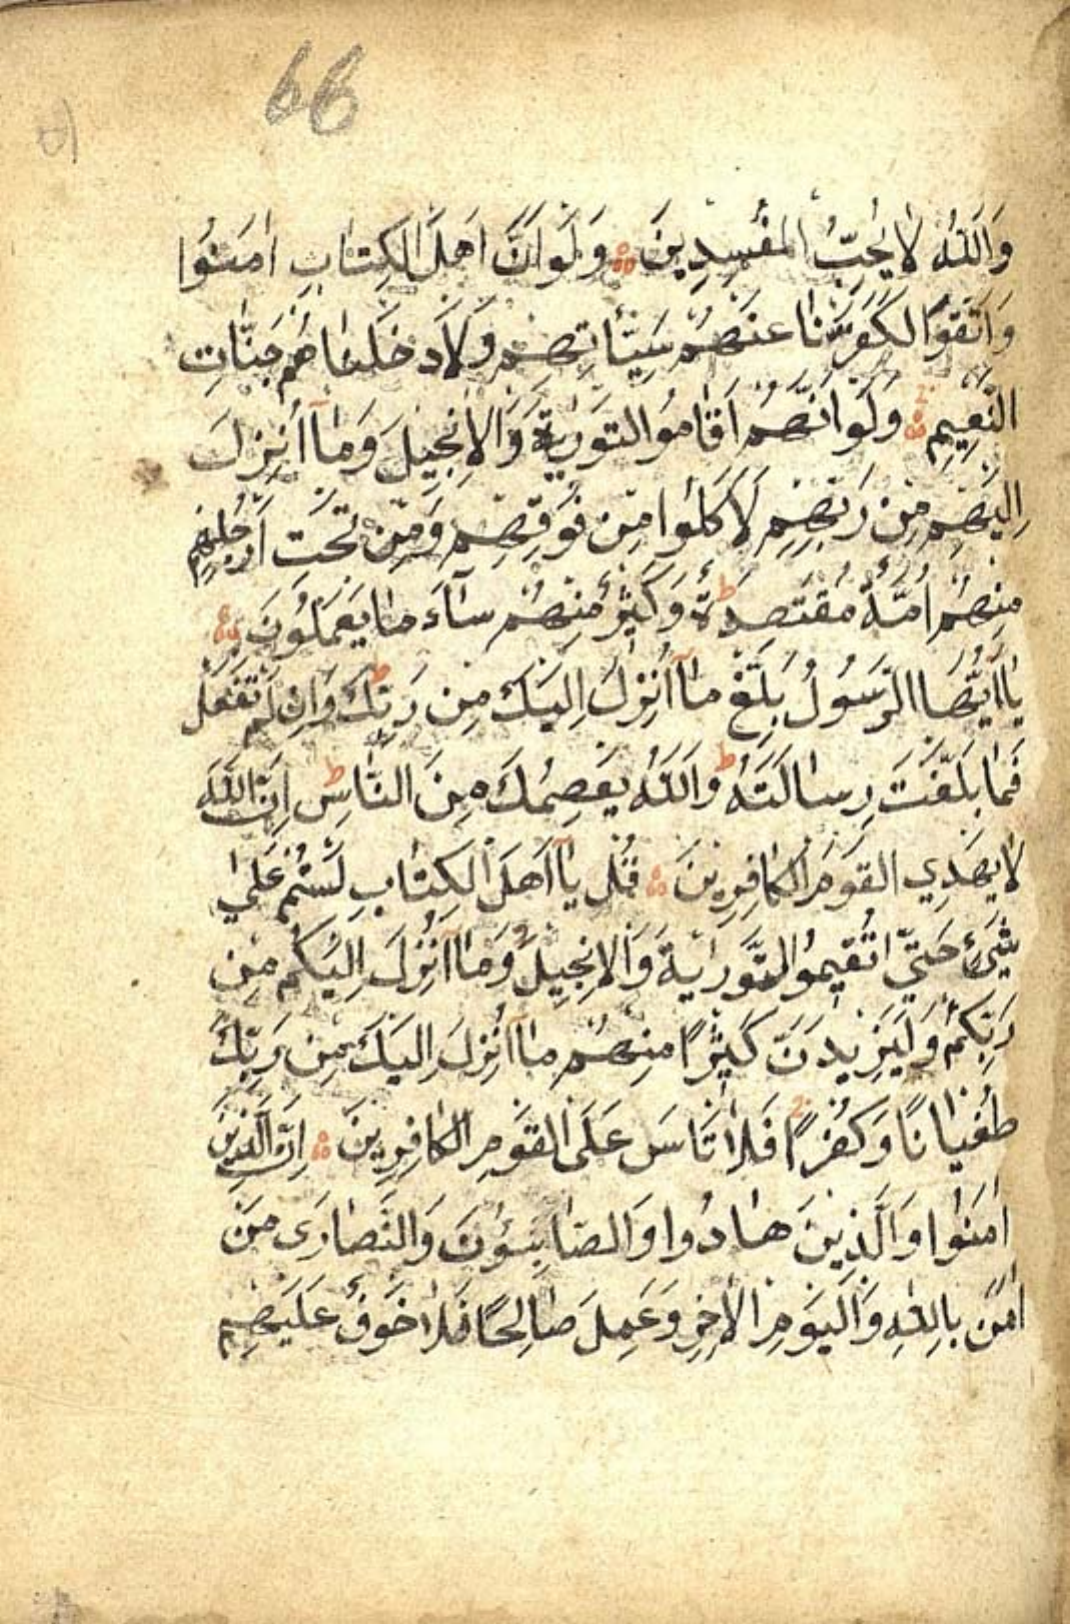 66
وَاللّٰهُ لَا يُحِبُّ الْمُفْسِدِينَ وَلَوْ اَنَّ اَهْلَ الْكِتَابِ اٰمَنُوا
وَاتَّقَوْا لَكَفَّرْنَا عَنْهُمْ سَيِّئَاتِهِمْ وَلَاَدْخَلْنَاهُمْ جَنَّاتِ
النَّعِيمِ وَلَوْ اَنَّهُمْ اَقَامُوا التَّوْرٰيةَ وَالْاِنْجِيلَ وَمَٓا اُنْزِلَ
اِلَيْهِمْ مِنْ رَبِّهِمْ لَاَكَلُوا مِنْ فَوْقِهِمْ وَمِنْ تَحْتِ اَرْجُلِهِمْ
مِنْهُمْ اُمَّةٌ مُقْتَصِدَةٌ ط وَكَثِيرٌ مِنْهُمْ سَٓاءَ مَا يَعْمَلُونَ
يَٓا اَيُّهَا الرَّسُولُ بَلِّغْ مَٓا اُنْزِلَ اِلَيْكَ مِنْ رَبِّكَ ط وَاِنْ لَمْ تَفْعَلْ
فَمَا بَلَّغْتَ رِسَالَتَهُ ط وَاللّٰهُ يَعْصِمُكَ مِنَ النَّاسِ ط اِنَّ اللّٰهَ
لَا يَهْدِي الْقَوْمَ الْكَافِرِينَ قُلْ يَٓا اَهْلَ الْكِتَابِ لَسْتُمْ عَلٰي
شَيْءٍ حَتّٰي تُقِيمُوا التَّوْرٰيةَ وَالْاِنْجِيلَ وَمَٓا اُنْزِلَ اِلَيْكُمْ مِنْ
رَبِّكُمْ وَلَيَزِيدَنَّ كَثِيرًا مِنْهُمْ مَٓا اُنْزِلَ اِلَيْكَ مِنْ رَبِّكَ
طُغْيَانًا وَكُفْرًا فَلَا تَاْسَ عَلَى الْقَوْمِ الْكَافِرِينَ اِنَّ الَّذِينَ
اٰمَنُوا وَالَّذِينَ هَادُوا وَالصَّابِئُونَ وَالنَّصَارٰى مَنْ
اٰمَنَ بِاللّٰهِ وَالْيَوْمِ الْاٰخِرِ وَعَمِلَ صَالِحًا فَلَا خَوْفٌ عَلَيْهِمْ